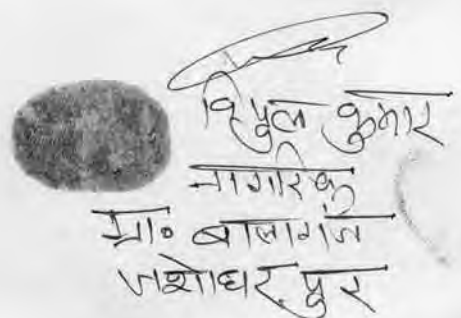 विपुल कुमार
नागरिक
ग्रा॰ बालागंज
जशोधर पुर